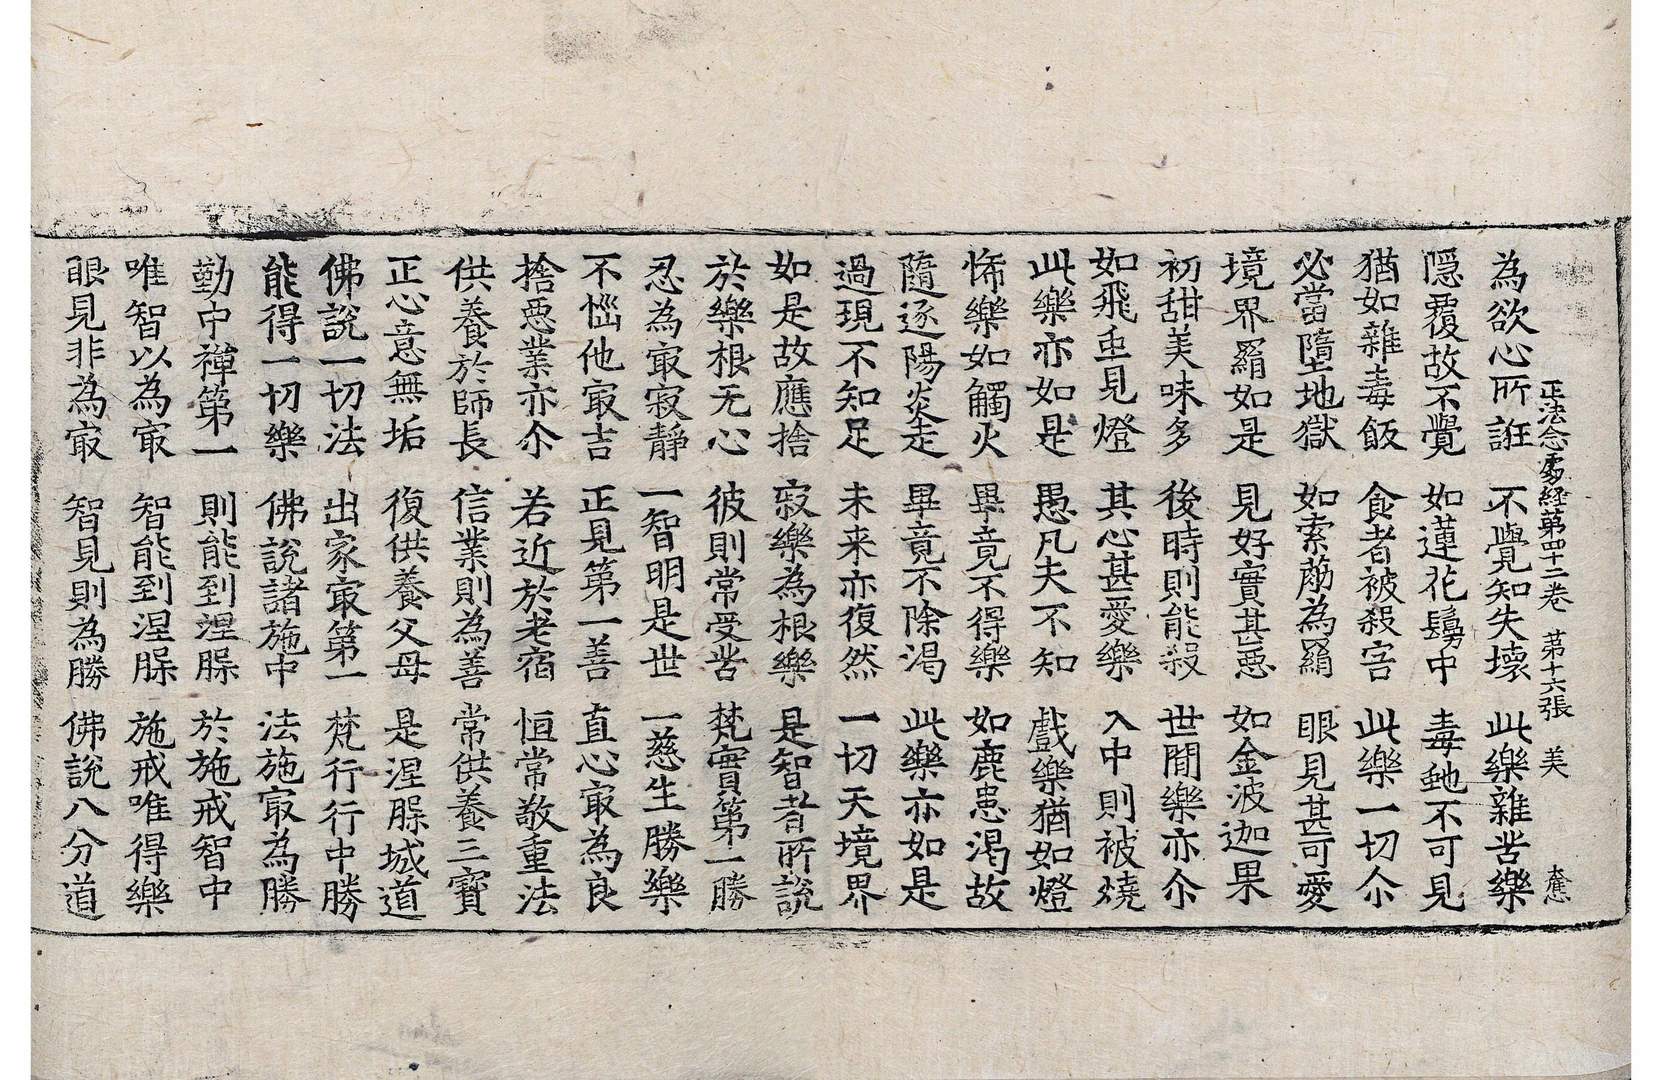 正法念處経第四十二卷　第十六張　美
為欲心所誑　不覺知失壞　此樂雜苦樂
隱覆故不覺　如蓮花鬚中　毒虵不可見
猶如雜毒飯　食者被殺害　此樂一切尒
必當墮地獄　如索葪為羂　眼見甚可愛
境界羂如是　見好實甚惡　如金波迦果
初甜美味多　後時則能殺　世間樂亦尒
如飛虫見燈　其心甚愛樂　入中則被燒
此樂亦如是　愚凡夫不知　戲樂猶如燈
悕樂如觸火　畢竟不得樂　如鹿患渴故
隨逐陽炎走　畢竟不除渴　此樂亦如是
過現不知足　未来亦復然　一切天境界
如是故應捨　寂樂為根樂　是智者所說
於樂根无心　彼則常受苦　梵實第一勝
忍為㝡寂靜　一智明是世　一慈生勝樂
不惱他㝡吉　正見第一善　直心㝡為良
捨惡業亦尒　若近於老宿　恒常敬重法
供養於師長　信業則為善　常供養三寶
正心意無垢　復供養父母　是涅槃城道
佛說一切法　出家㝡第一　梵行行中勝
能得一切樂　佛說諸施中　法施㝡為勝
勤中禪第一　則能到涅槃　於施戒智中
唯智以為㝡　智能到涅槃　施戒唯得樂
眼見非為㝡　智見則為勝　佛說八分道